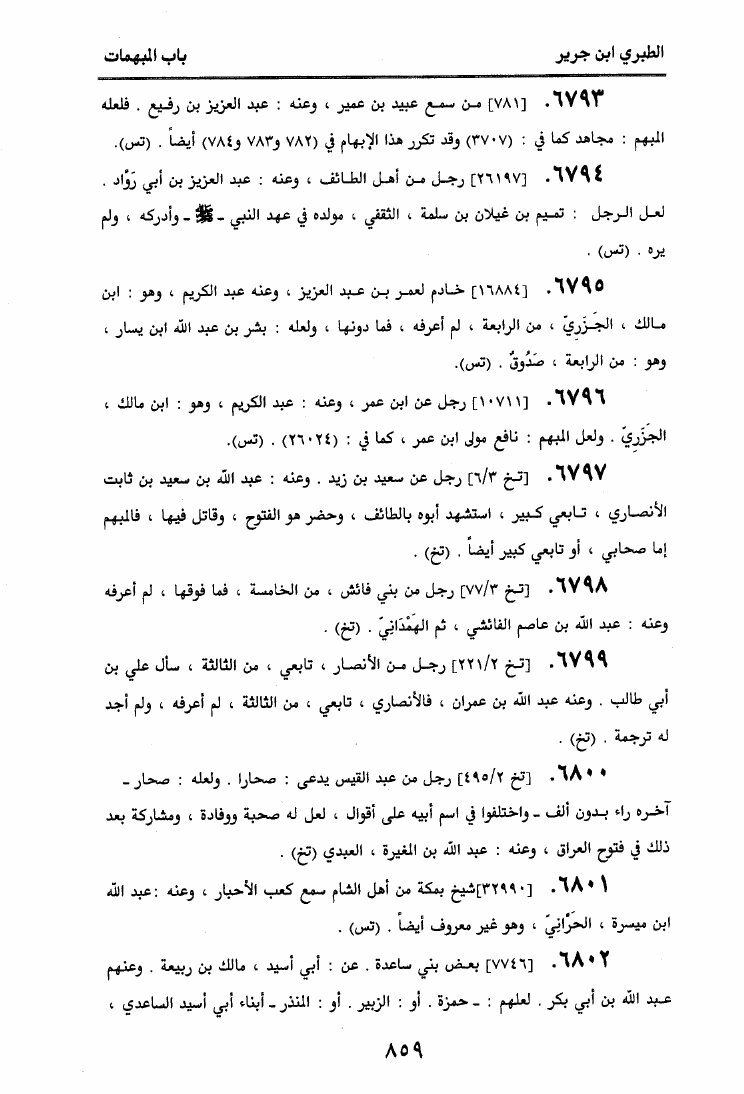 الطبري ابن جرير
باب المبهمات
٦٧٩٣. [٧٨١] من سمع عبيد بن عمير ، وعنه : عبد العزيز بن رفيع . فلعله
المبهم : مجاهد كما في : (٣٧٠٧) وقد تكرر هذا الإبهام في (٧٨٢ و٧٨٣ و٧٨٤) أيضاً . (تس).
٦٧٩٤. [٢٦١٩٧] رجل من أهل الطائف ، وعنه : عبد العزيز بن أبي رَوَّاد .
لعل الرجل : تميم بن غيلان بن سلمة ، الثقفي ، مولده في عهد النبي - ﷺ - وأدركه ، ولم
يره . (تس) .
٦٧٩٥. [١٦٨٨٤] خادم لعمر بن عبد العزيز ، وعنه عبد الكريم ، وهو : ابن
مالك ، الجَزَرِيّ ، من الرابعة ، لم أعرفه ، فما دونها ، ولعله : بشر بن عبد الله ابن يسار ،
وهو : من الرابعة ، صَدُوقٌ . (تس).
٦٧٩٦. [١٠٧١١] رجل عن ابن عمر ، وعنه : عبد الكريم ، وهو : ابن مالك ،
الجَزَرِيّ . ولعل المبهم : نافع مولى ابن عمر ، كما في : (٢٦٠٢٤) . (تس).
٦٧٩٧. [تخ ٦/٣] رجل عن سعيد بن زيد . وعنه : عبد الله بن سعيد بن ثابت
الأنصاري ، تابعي كبير ، استشهد أبوه بالطائف ، وحضر هو الفتوح ، وقاتل فيها ، فالمبهم
إما صحابي ، أو تابعي كبير أيضاً . (تخ) .
٦٧٩٨. [تخ ٧٧/٣] رجل من بني فائش ، من الخامسة ، فما فوقها ، لم أعرفه
وعنه : عبد الله بن عاصم الفائشي ، ثم الهَمْدَانِيّ . (تخ) .
٦٧٩٩. [تخ ٢٢١/٢] رجل من الأنصار ، تابعي ، من الثالثة ، سأل علي بن
أبي طالب . وعنه عبد الله بن عمران ، فالأنصاري ، تابعي ، من الثالثة ، لم أعرفه ، ولم أجد
له ترجمة . (تخ) .
٦٨٠٠. [تخ ٤٩٥/٢] رجل من عبد القيس يدعى : صحارا . ولعله : صحار -
آخره راء بدون ألف - واختلفوا في اسم أبيه على أقوال ، لعل له صحبة ووفادة ، ومشاركة بعد
ذلك في فتوح العراق ، وعنه : عبد الله بن المغيرة ، العبدي (تخ) .
٦٨٠١. [٣٢٩٩٠]شيخ بمكة من أهل الشام سمع كعب الأحبار ، وعنه :عبد الله
ابن ميسرة ، الحَرَّانِيّ ، وهو غير معروف أيضاً . (تس) .
٦٨٠٢. [٧٧٤٦] بعض بني ساعدة . عن : أبي أسيد ، مالك بن ربيعة . وعنهم
عبد الله بن أبي بكر . لعلهم : - حمزة . أو : الزبير . أو : المنذر - أبناء أبي أسيد الساعدي ،
٨٥٩